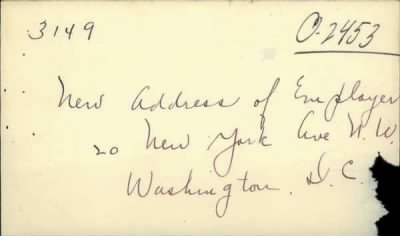 3149 O-2453
New Address of Employer
20 New York Ave N.W.
Washington. D.C.